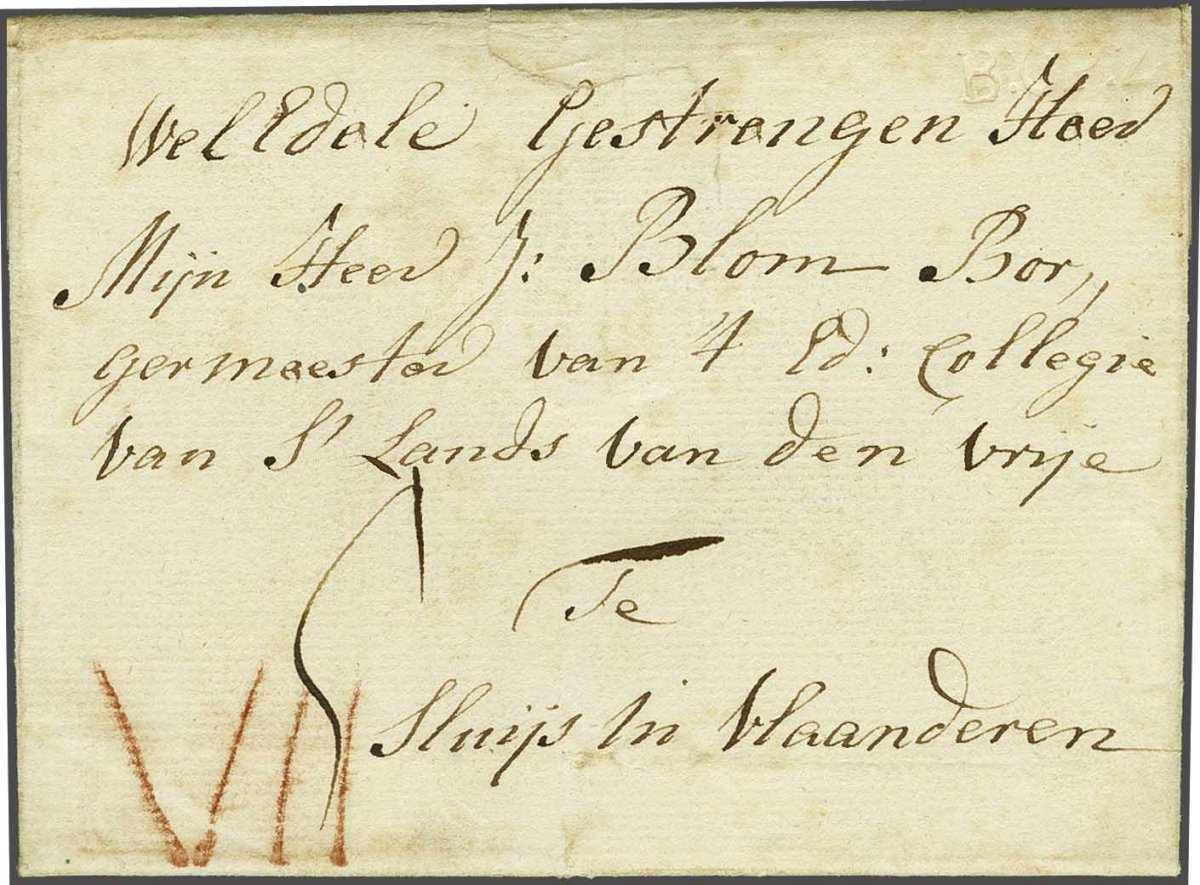 Wel Edale Gestrangen Heer
Mijn Heer J: Blom Bor„
germeester van 4 Ed: Collegie
van S' Lands van den vrije
Te
Sluijs In Vlaanderen
VII